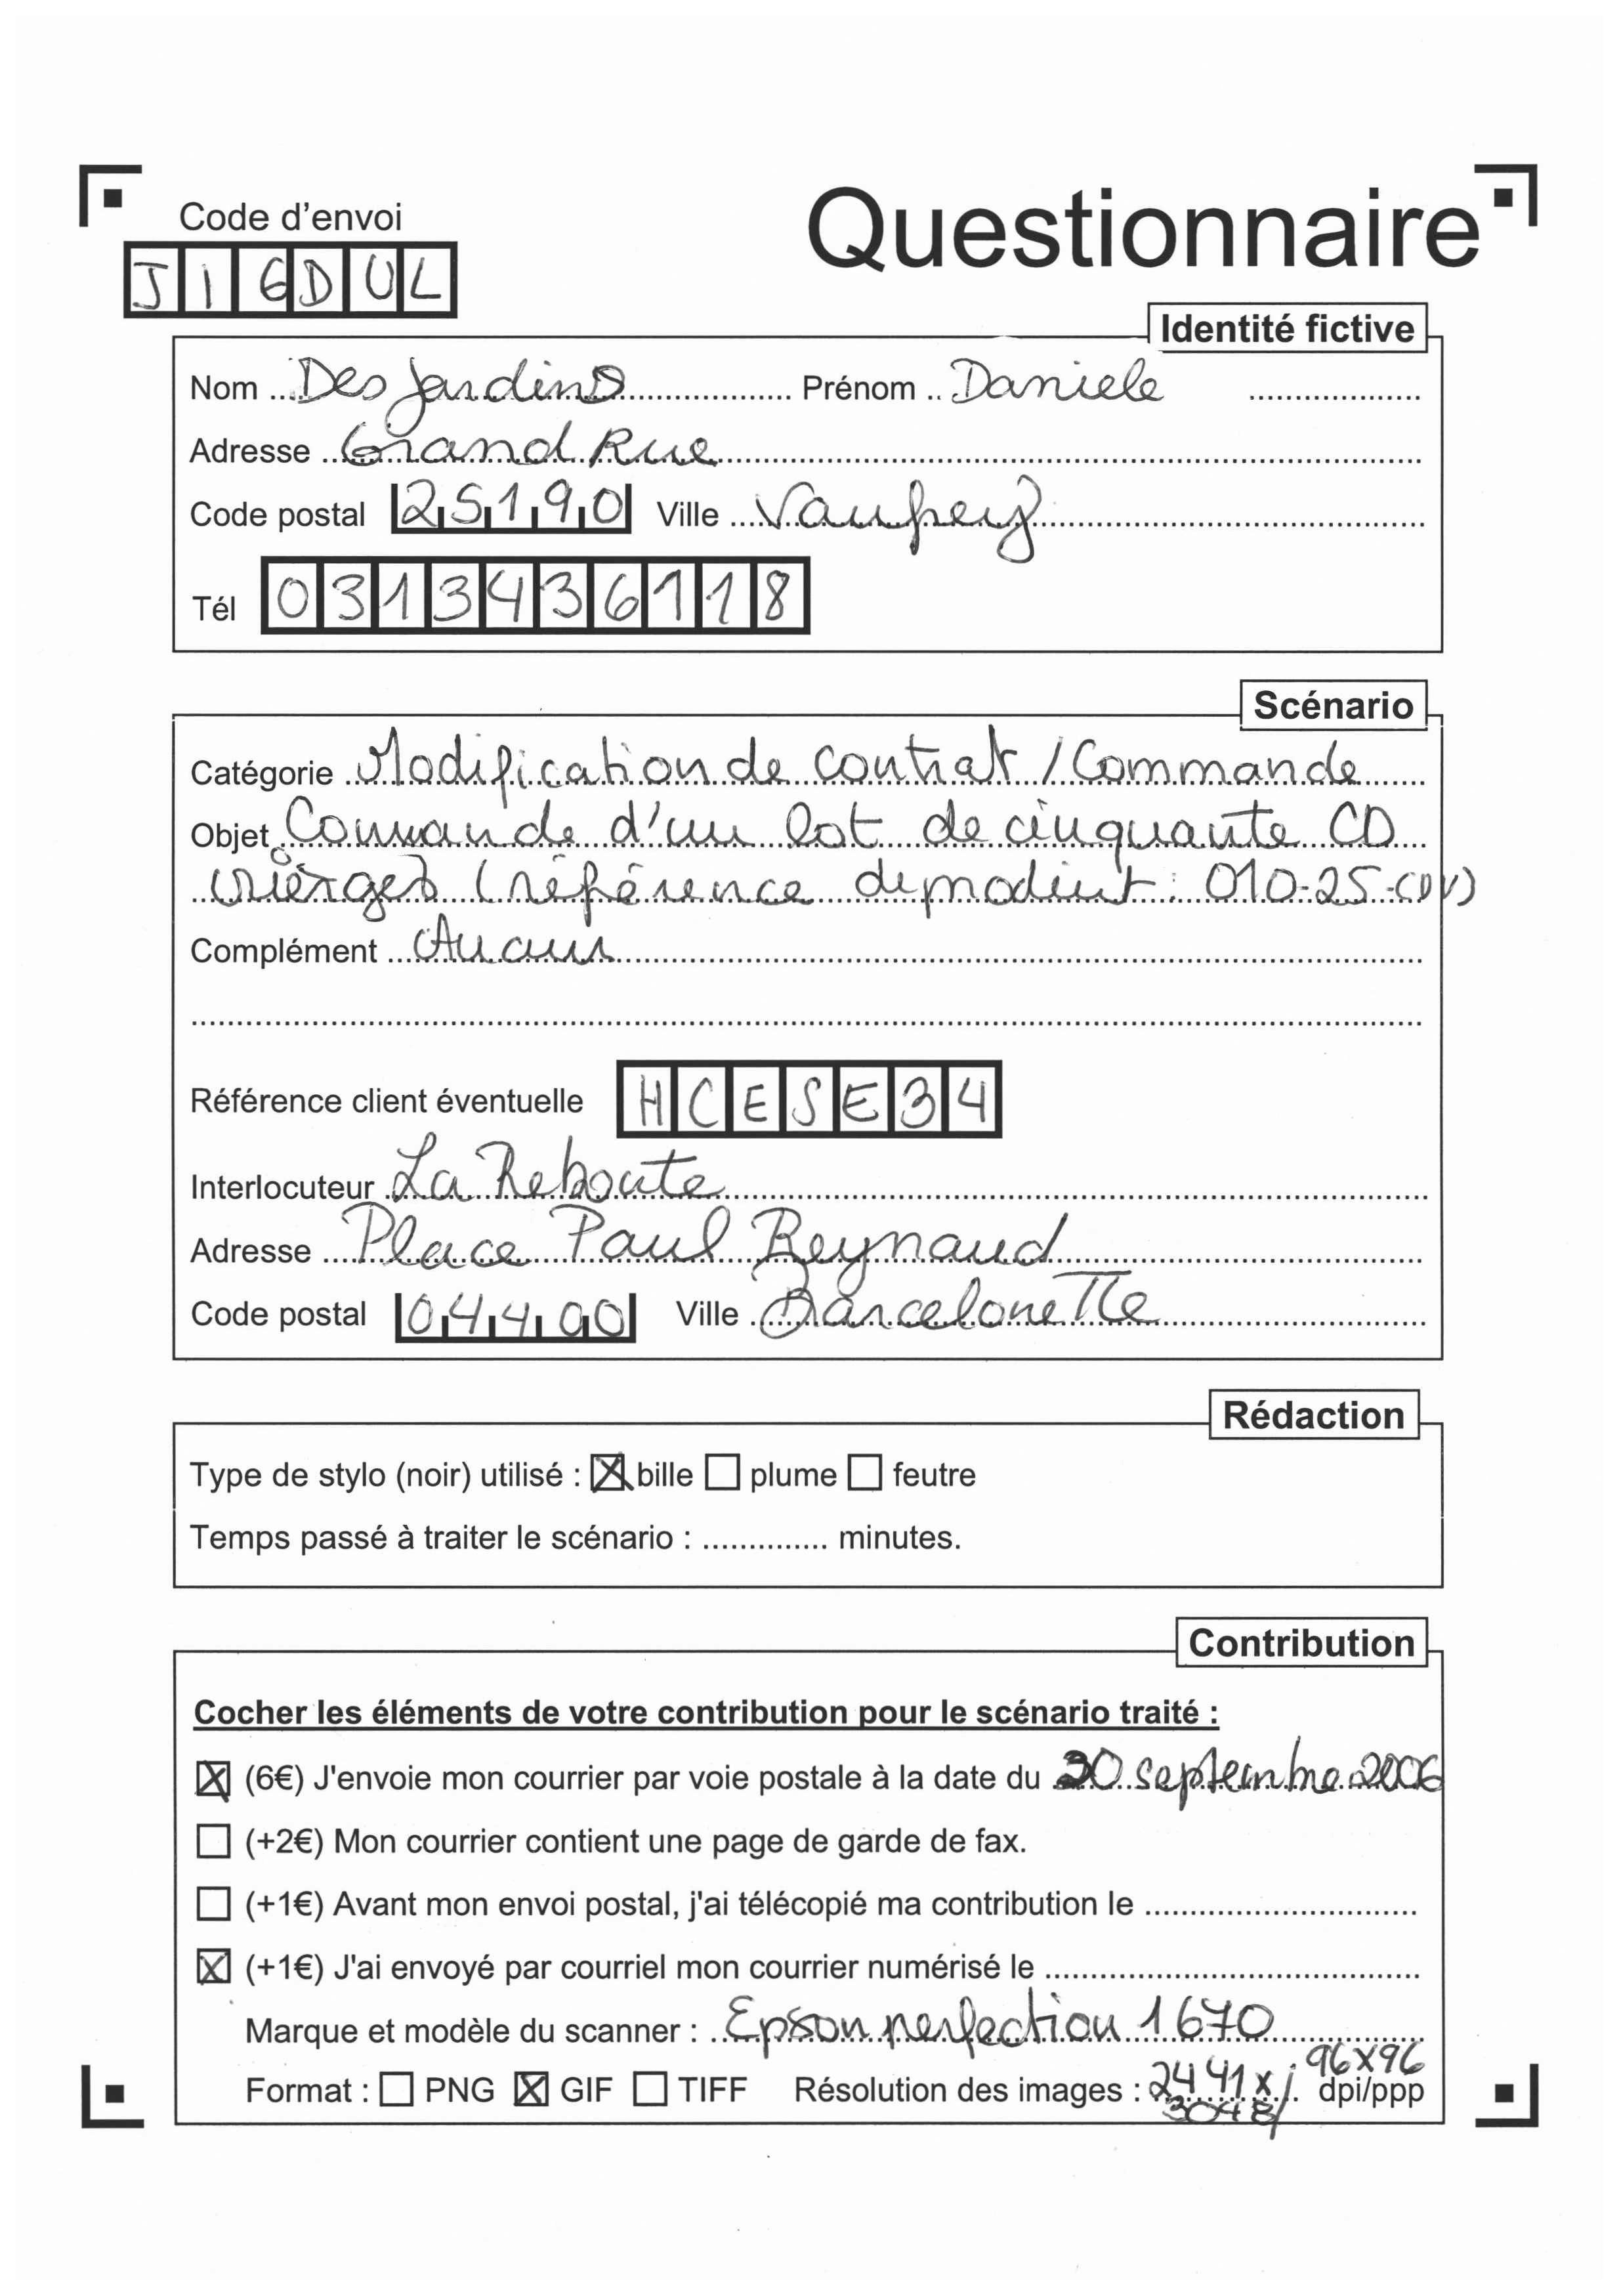 Code d'envoi
Questionnaire
J I G D U L
Identité fictive
Nom Desjardins Prénom Daniele
Adresse Grand Rue
Code postal 25190 Ville Vaufrey
Tél 0313436118
Scénario
Catégorie Modification de contrat / Commande
Objet Commande d'un lot de cinquante CD
vierges (référence du produit : 010-25-CDV)
Complément Aucun
Référence client éventuelle HCESE34
Interlocuteur La Reboute
Adresse Place Paul Reynaud
Code postal 04400 Ville Barcelonette
Rédaction
Type de stylo (noir) utilisé : bille plume feutre
Temps passé à traiter le scénario : .............. minutes.
Contribution
Cocher les éléments de votre contribution pour le scénario traité :
(6€) J'envoie mon courrier par voie postale à la date du 30 septembre 2006
(+2€) Mon courrier contient une page de garde de fax.
(+1€) Avant mon envoi postal, j'ai télécopié ma contribution le
(+1€) J'ai envoyé par courriel mon courrier numérisé le
Marque et modèle du scanner : Epson perfection 1670
Format : PNG GIF TIFF Résolution des images : 2441 x 3048 / 96x96 dpi/ppp